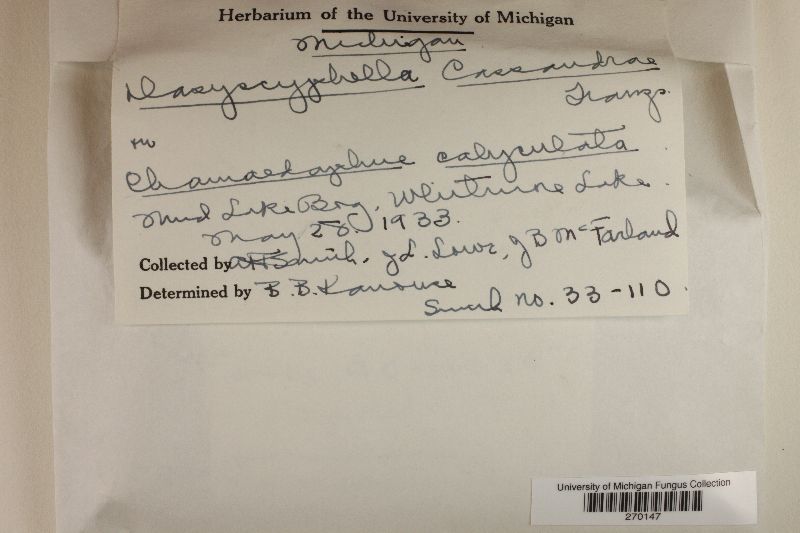 Herbarium of the University of Michigan
Michigan
Dasyscyphella Cassandrae
Tranz.
on
Chamaedaphne calyculata.
Mud Lake Bog, Whitmore Lake.
May 28, 1933.
Collected by A H Smith, J L. Lowe, J B McFarland
Determined by B. B. Kanouse
Smith no. 33-110.
University of Michigan Fungus Collection
270147